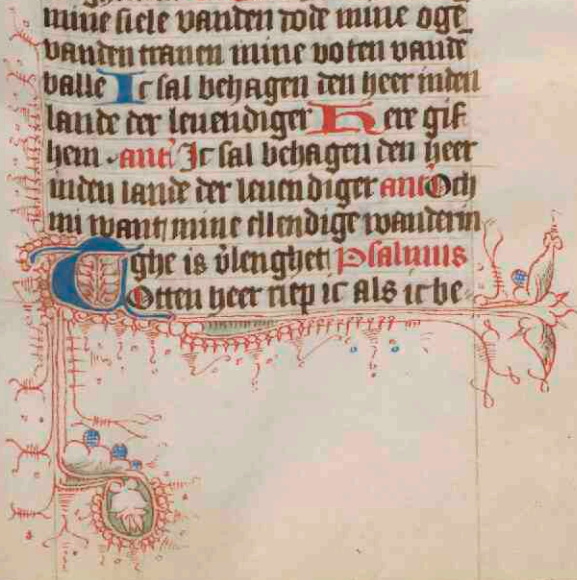 mine siele vanden dode mine oge
vanden tranen mine voten vande
valle Ic sal behagen den heer inden
lande der leuendiger Here gif
hem. ant' Ic sal behagen den heer
inden lande der leuendiger ant Och
mi want mine ellendige wanderin
ghe is v̄lenghet Psalmus
Totten heer riep ic als ic be